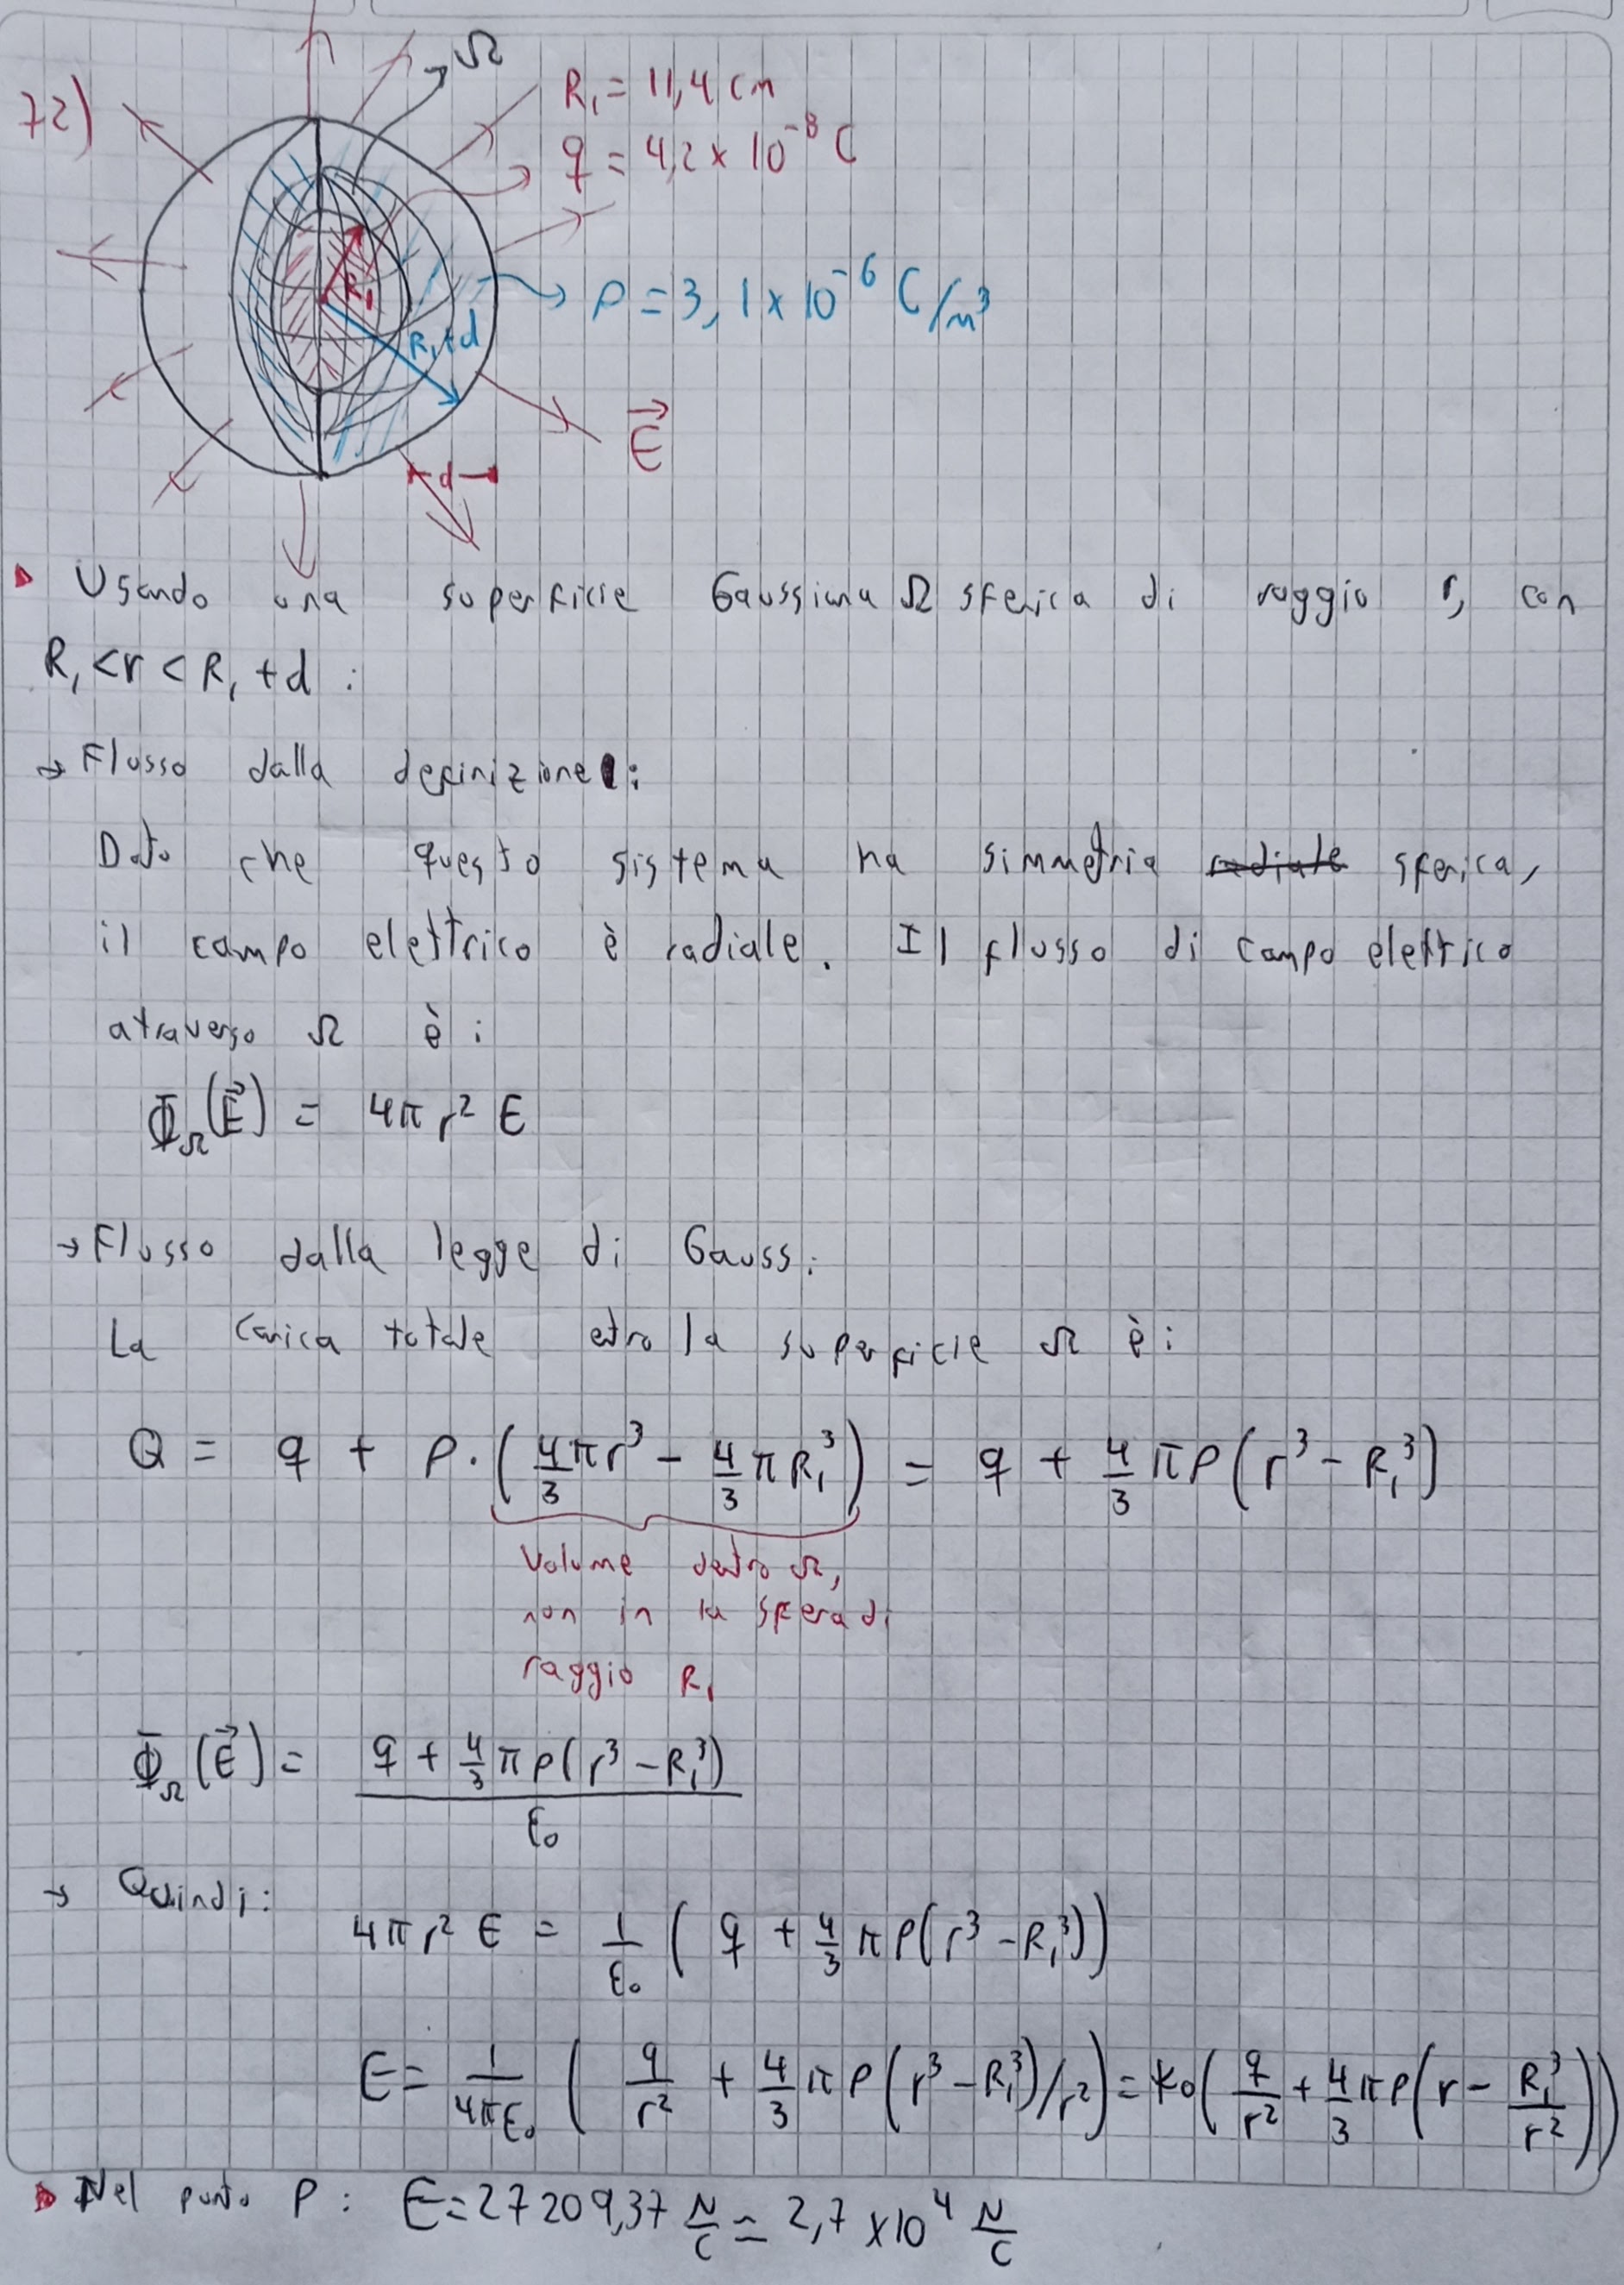 72)
Ω
R₁ = 11,4 cm
q = 4,2 × 10⁻⁸ C
R₁
ρ = 3,1 × 10⁻⁶ C/m³
R₁+d
E⃗
d
Usando una superficie Gaussiana Ω sferica di raggio r, con
R₁ < r < R₁ + d :
→ Flusso dalla definizione :
Dato che questo sistema ha simmetria radiale sferica,
il campo elettrico è radiale. Il flusso di campo elettrico
atraverso Ω è :
Φ_Ω(E⃗) = 4πr² E
→ Flusso dalla legge di Gauss :
La carica totale etro la superficie Ω è :
Q = q + ρ · (4/3 πr³ − 4/3 πR₁³) = q + 4/3 πρ(r³ − R₁³)
Volume dentro Ω,
non in la sfera di
raggio R₁
Φ_Ω(E⃗) = (q + 4/3 πρ(r³ − R₁³)) / ε₀
→ Quindi :
4πr² E = 1/ε₀ (q + 4/3 πρ(r³ − R₁³))
E = 1/(4πε₀) (q/r² + 4/3 πρ(r³ − R₁³)/r²) = k₀(q/r² + 4/3 πρ(r − R₁³/r²))
Nel punto P : E = 27209,37 N/C ≃ 2,7 × 10⁴ N/C